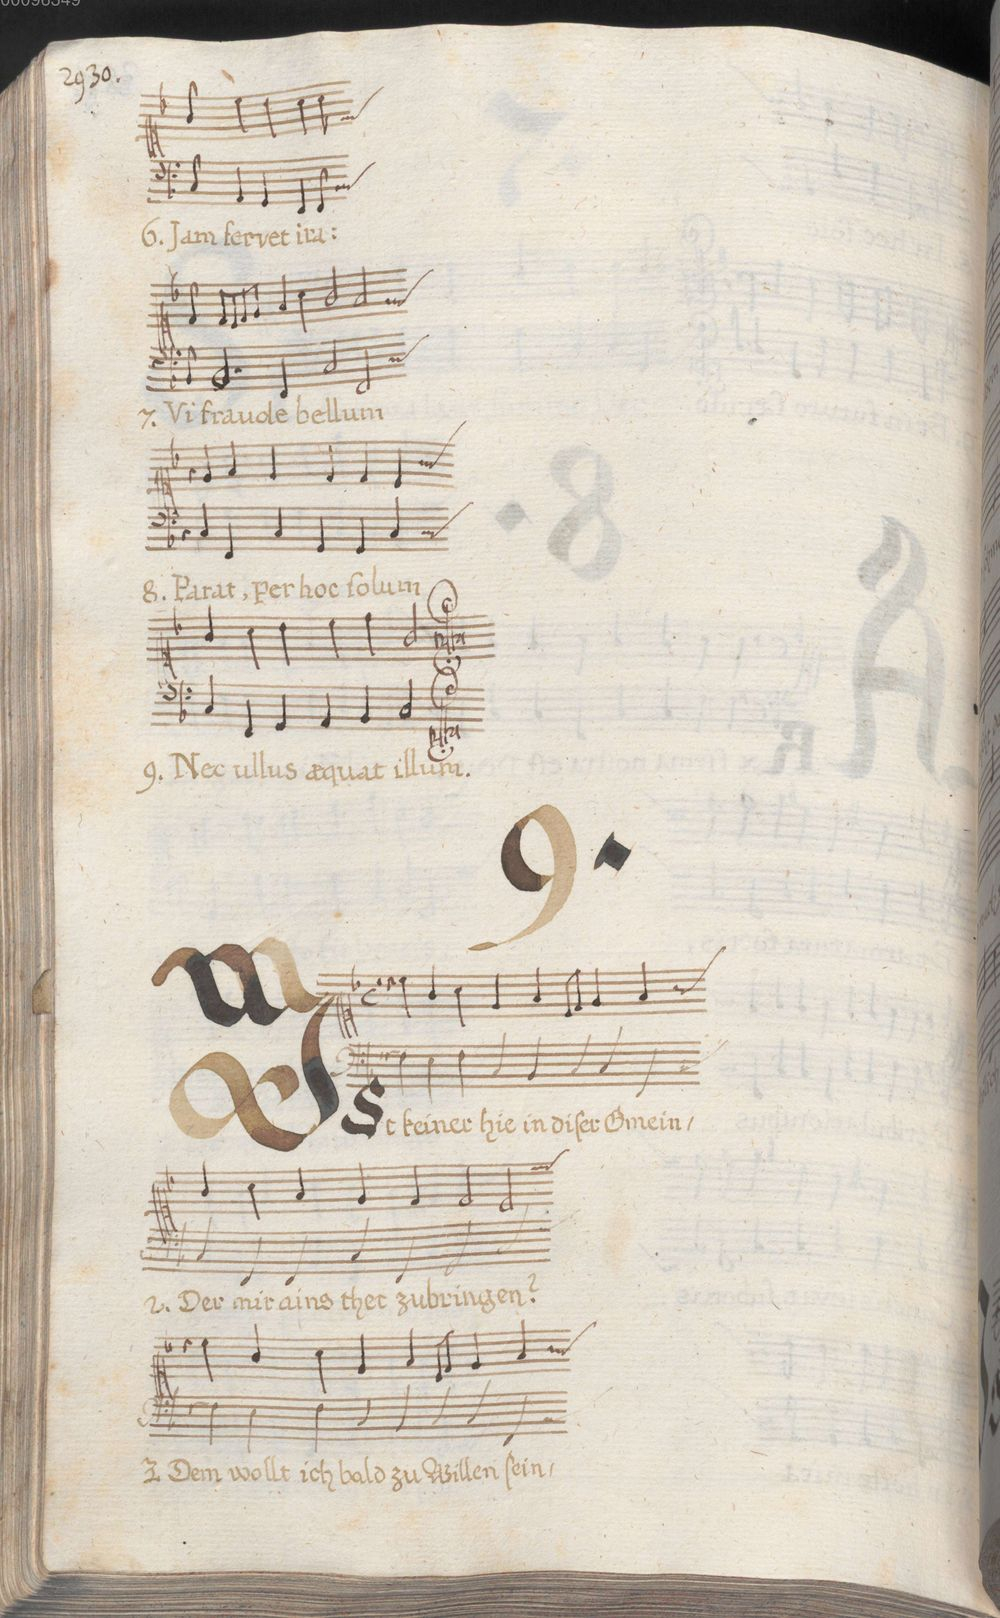 00098549
2930.
6. Jam fervet ira:
7. Vi fraude bellum
8. Parat, per hoc solum
9. Nec ullus æquat illum.
9.
Ist keiner hie in diser Gmein/
2. Der mir ains thet zubringen?
3. Dem wollt ich bald zu Willen sein/